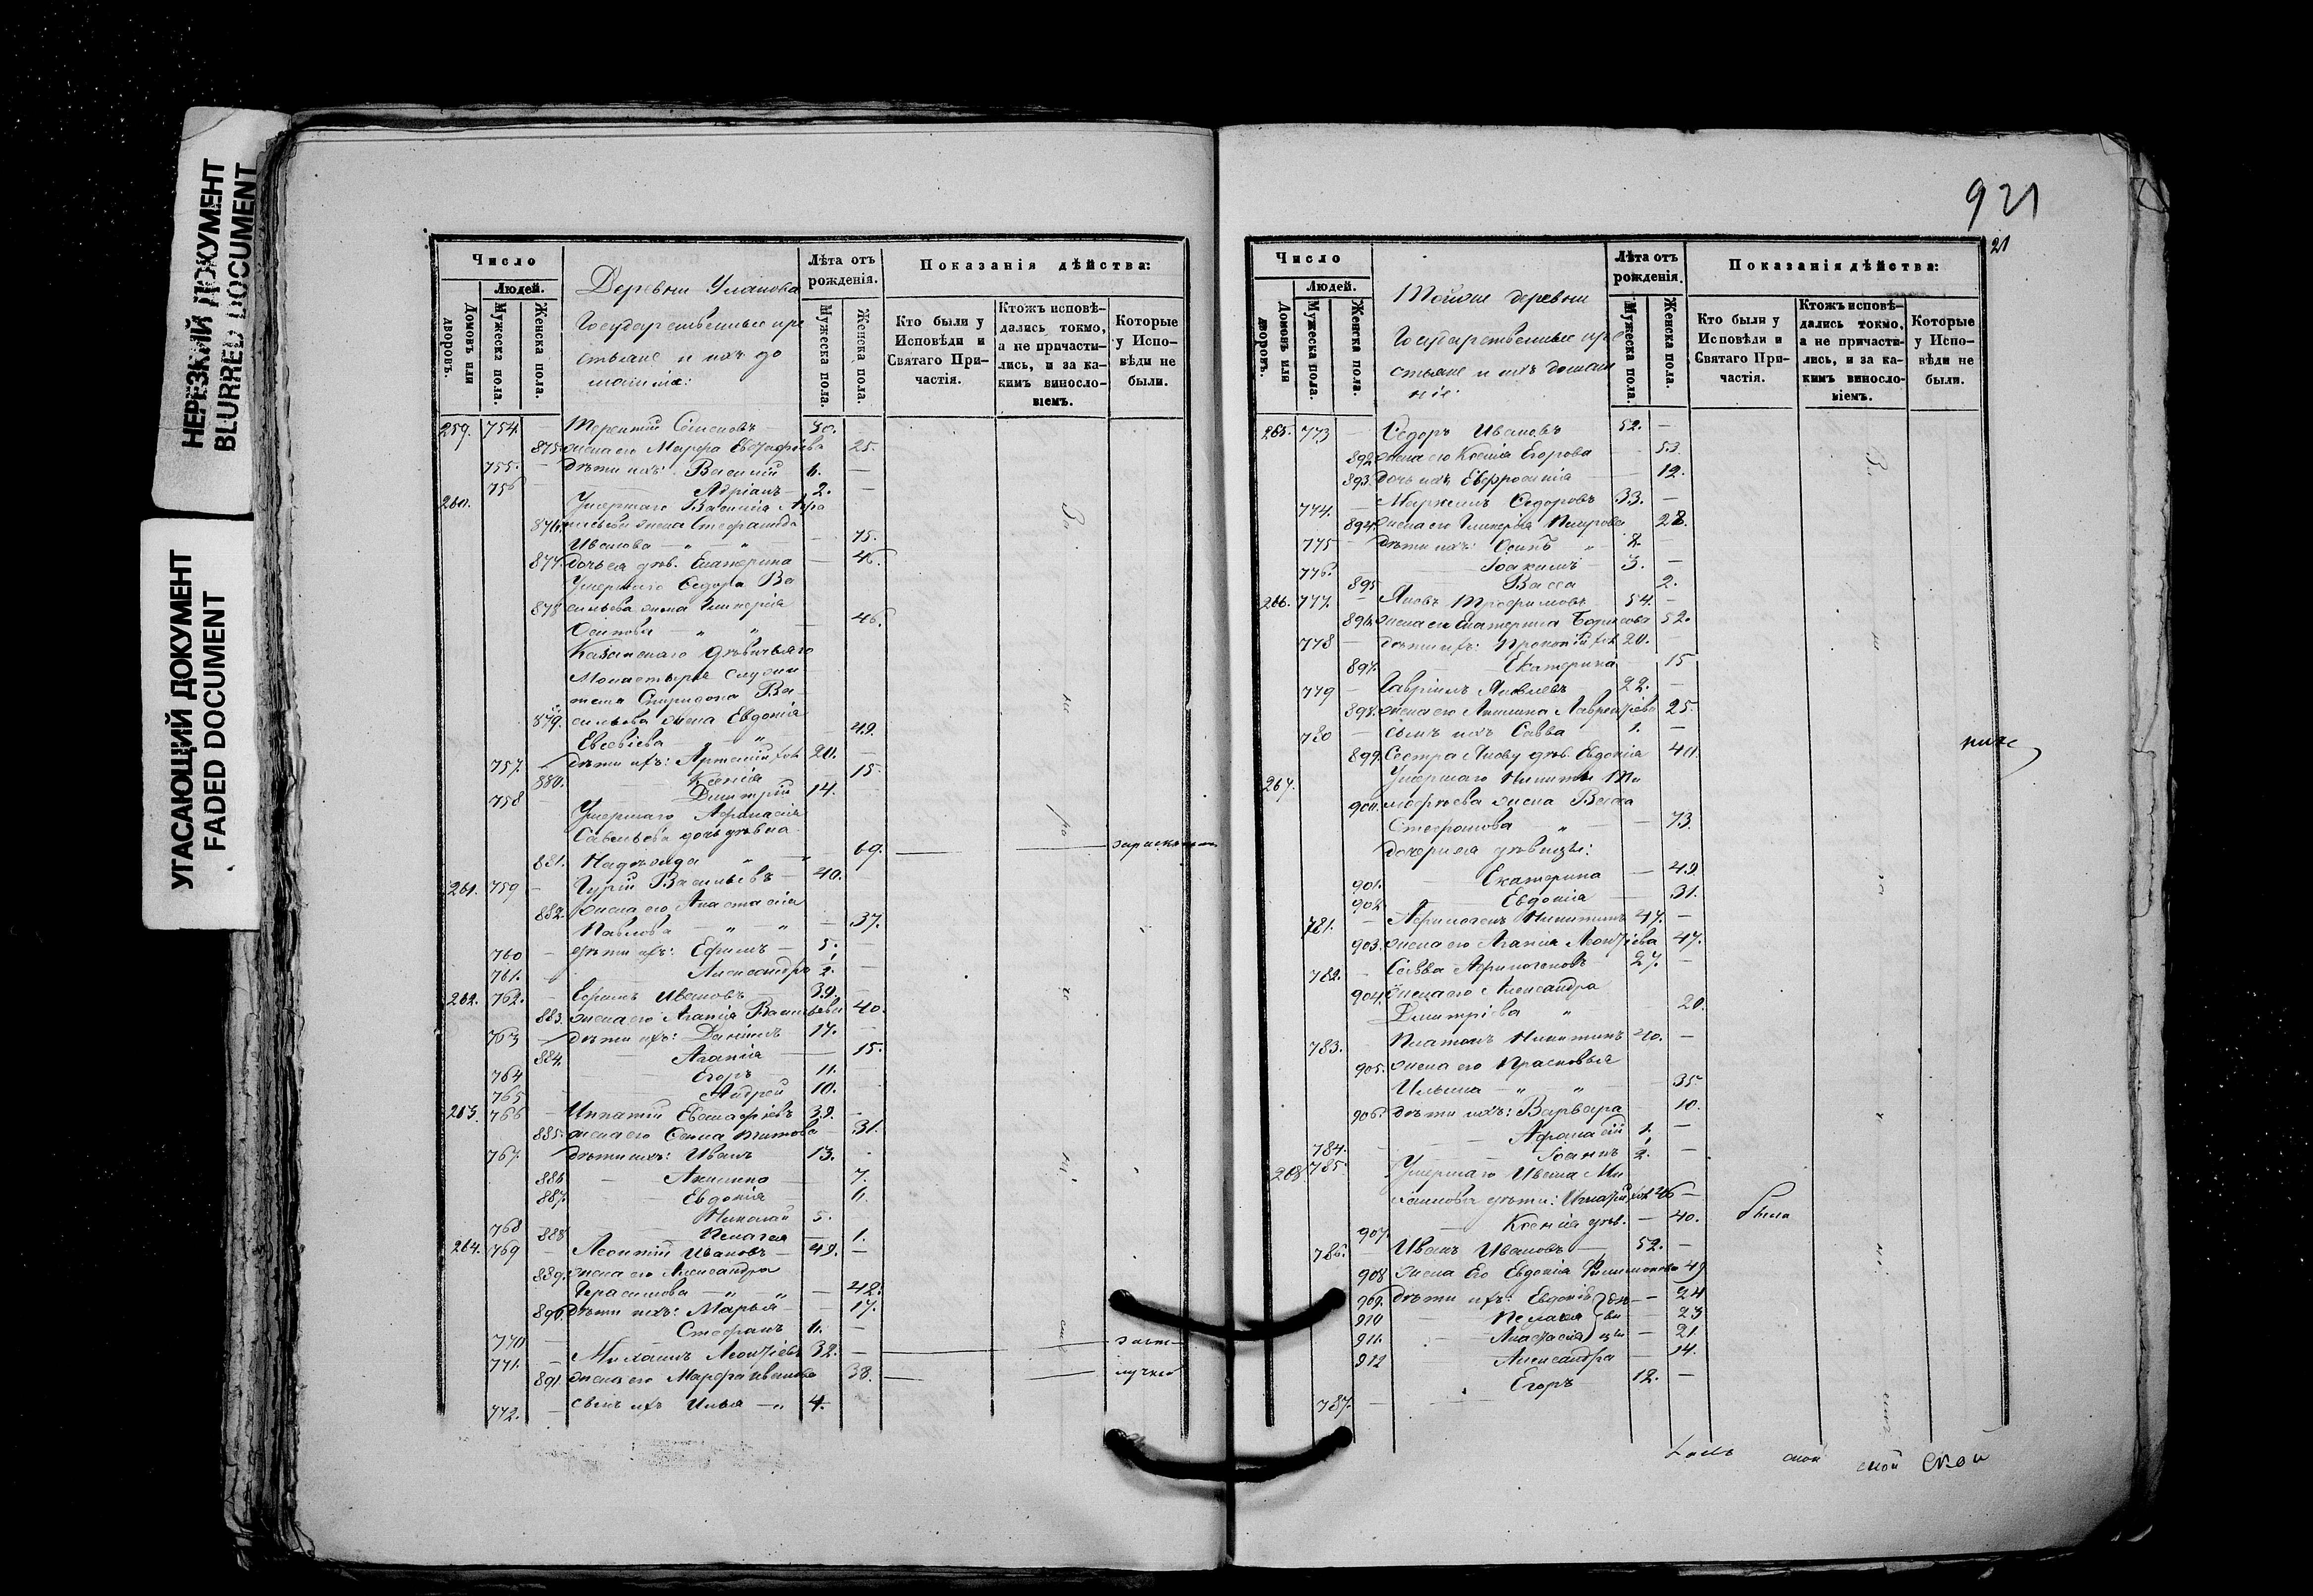 НЕРЕЗКИЙ ДОКУМЕНТ
BLURRED DOCUMENT
УГАСАЮЩИЙ ДОКУМЕНТ
FADED DOCUMENT
Число
Людей.
Домовъ или дворовъ.
Мужеска пола.
Женска пола.
Деревни
Государственные кре
стьяне и ихъ до
машніе:
Лѣта отъ рожденія.
Мужеска пола.
Женска пола.
Показанія дѣйства:
Кто были у Исповѣди и Святаго При-
частія.
Ктожъ исповѣ-
дались токмо, а не причасти-
лись, и за ка-
кимъ виносло-
віемъ.
Которые у Испо-
вѣди не были.
259. 754. Терентий Семеновъ 30.
875. жена его Марфа Евстафіева 25.
755. дѣти ихъ: Василій 6.
756 Адріанъ 2.
260. Умершаго Василія
876. жена Стефанида
Иванова 75.
877. дочь ея дѣв. Екатерина 46.
Умершаго Ѳедора Ва
878 сильева жена Гликерія
Осипова 46.
Казанскаго Дѣвичьяго
Монастыря служи
теля Спиридона Ва-
879. сильева жена Евдокія
Евсевіева 49.
757. дѣти ихъ: Артемій 20.
880. Ксенія 15.
758 Димитрій 14.
Умершаго Афанасія
Савельева дочь дѣвка
881. Надежда 69.
261. 759 Гурій Васильевъ 40.
882. жена его Анастасія
Павлова 37.
760 дѣти ихъ: Ефимъ 5.
761. Александръ 2.
262. 762. Ефимъ Ивановъ 39.
883. жена его Агапія Васильева 40.
763 дѣти ихъ: Даніилъ 17.
884. Агапія 15.
764 Егоръ 11.
765 Андрей 10.
263. 766 Ипатій Евстафіевъ 39.
885. жена его Титова 31.
767. дѣти ихъ: Иванъ 13.
886 Акилина 7.
887. Евдокія 6.
768 Николай 5.
888 Пелагея 1.
264. 769 Леонтій Ивановъ 49.
889. жена его Александра
Герасимова 42.
890. дѣти ихъ: Марья 17.
770 Стефанъ 11.
771. Михаилъ Леонтіевъ 32.
891 жена его Марфа Иванова 38.
772. сынъ ихъ Илья 4.
921
21
Число
Людей.
Домовъ или дворовъ.
Мужеска пола.
Женска пола.
Тойже деревни
Государственные кре
стьяне и ихъ домаш
ніе:
Лѣта отъ рожденія.
Мужеска пола.
Женска пола.
Показанія дѣйства:
Кто были у Исповѣди и Святаго При-
частія.
Ктожъ исповѣ-
дались токмо, а не причасти-
лись, и за ка-
кимъ виносло-
віемъ.
Которые у Испо-
вѣди не были.
265. 773 Ѳедоръ Ивановъ 52.
892. жена его Ксенія Егорова 53.
893. дочь ихъ Евфросинія 12.
774. Маркелъ Ѳедоровъ 33.
894. жена его Гликерія Петрова 28.
775 дѣти ихъ: Осипъ 8.
776. Іоакимъ 3.
895. Васса 2.
266. 777. Яковъ Трофимовъ 54.
896. жена его Екатерина Борисова 52.
778 дѣти ихъ: Прокопій 20.
897. Екатерина 15
779 Гавріилъ Яковлевъ 22.
898. жена его Акилина Лаврентіева 25.
780 сынъ ихъ Савва 1.
899. Сестра Якову дѣв. Евдокія 40.
267. Умершаго Никиты Ти
900. мофеева жена Васса
Стефанова 73.
дочери ея дѣвицы:
901. Екатерина 49.
902. Евдокія 31.
781. Афиногенъ Никитинъ 47.
903. жена его Агапія Леонтіева 47.
782. Савва Афиногеновъ 27.
904. жена его Александра
Димитріева 20.
783. Платонъ Никитинъ 40.
905. жена его Прасковья
Ильина 35
906. дѣти ихъ: Варвара 10.
784. Афанасій 1.
785. Іоаннъ 2.
268. Умершаго Ивана Ми
хаилова дѣти: Игнатій 46
907. Ксенія дѣв. 40. была
786. Иванъ Ивановъ 52.
908 жена Его Евдокія Филимонова 49
909. дѣти ихъ: Евдокія 24
910 Пелагея 23
911. Анастасія 21.
912 Александра 14.
787. Егоръ 12.